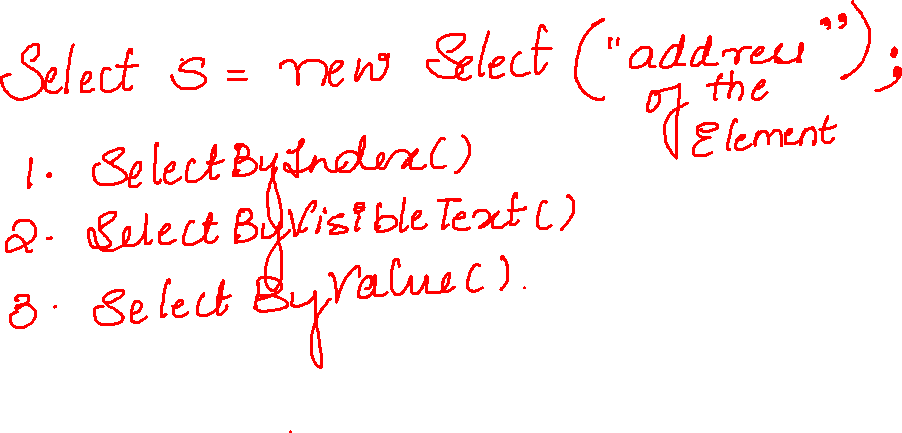 Select s = new Select ("address");
of the
Element
1. SelectByIndex()
2. SelectByVisibleText()
3. SelectByValue().